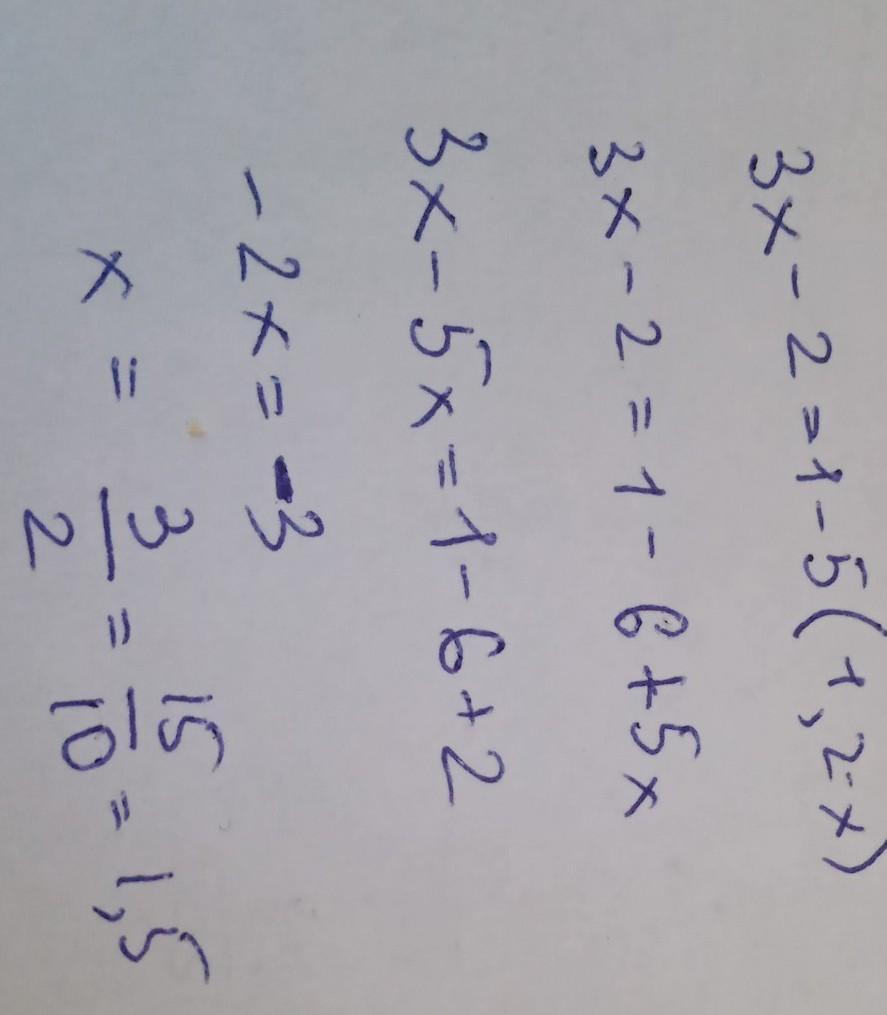 3x - 2 = 1 - 5(1,2-x)
3x - 2 = 1 - 6 + 5x
3x - 5x = 1 - 6 + 2
- 2x = -3
x = 3/2 = 15/10 = 1,5